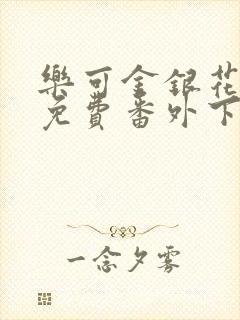 樂可金銀花
免費番外下
一念夕霧